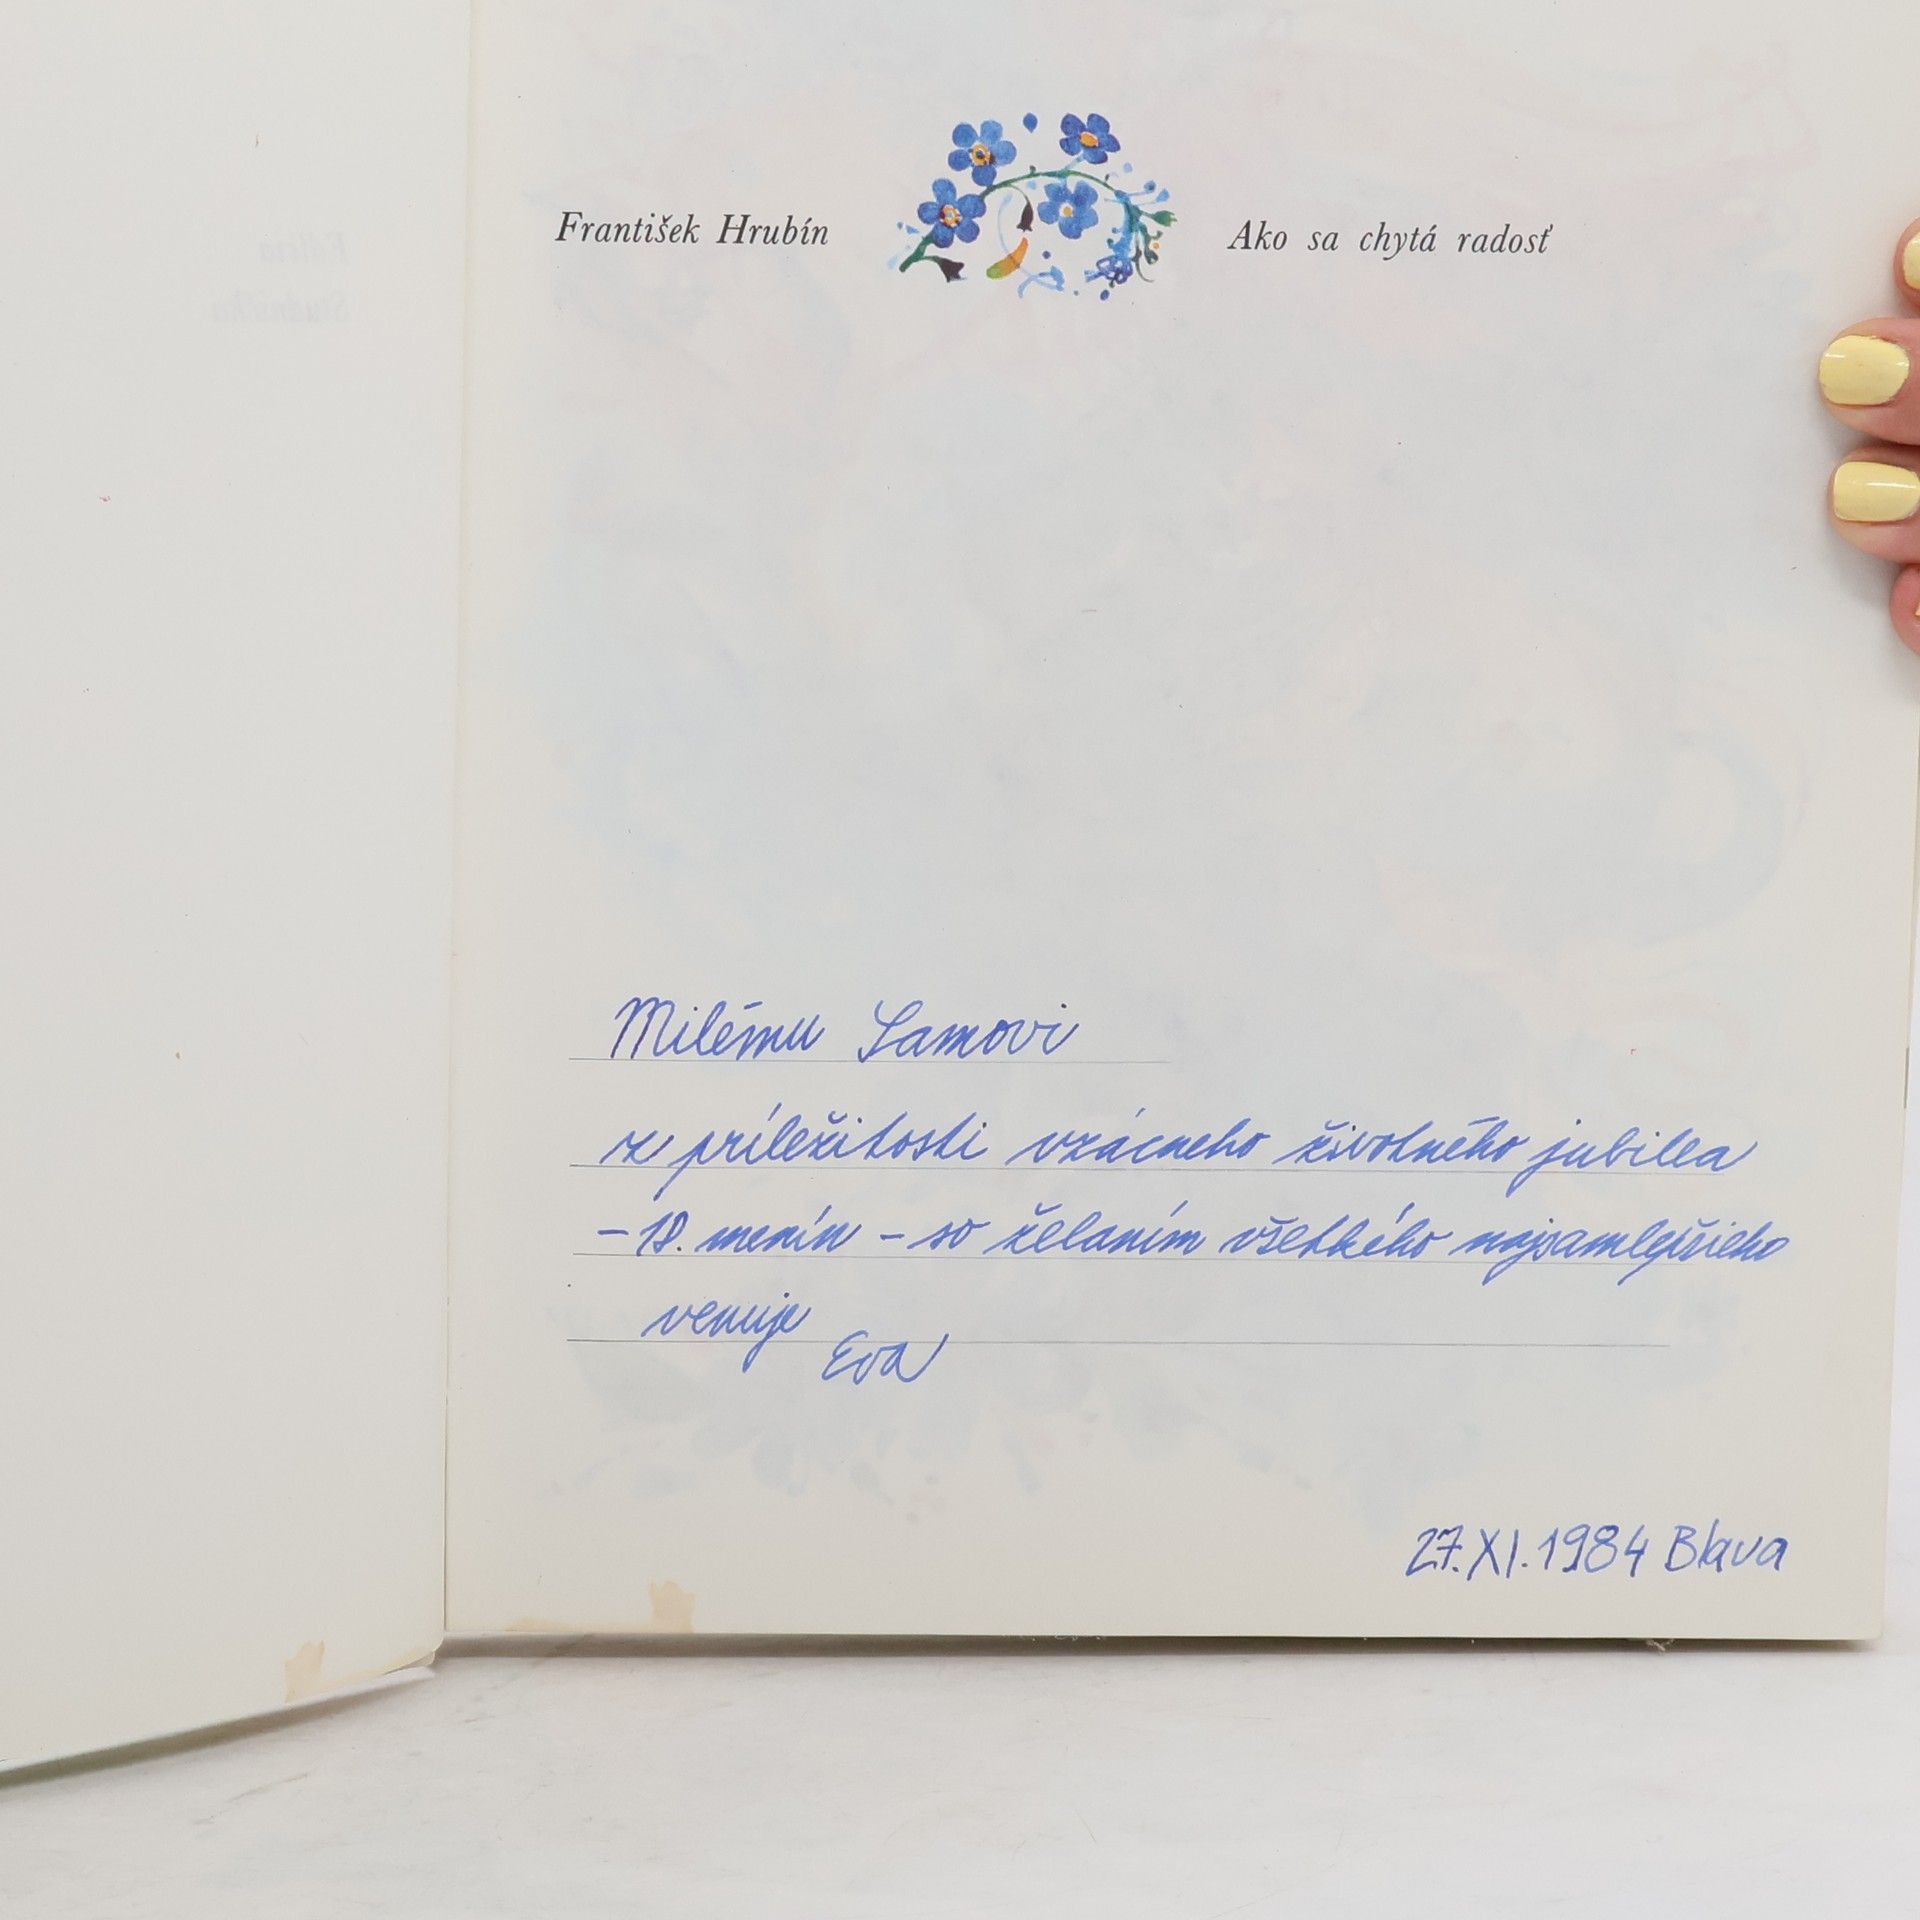 Edícia
Studnička
František Hrubín
Ako sa chytá radosť
Milému Samovi
z príležitosti vzácneho životného jubilea
– 18. menín – so želaním všetkého najsamlepšieho
venuje
Eva
27. XI. 1984 Blava